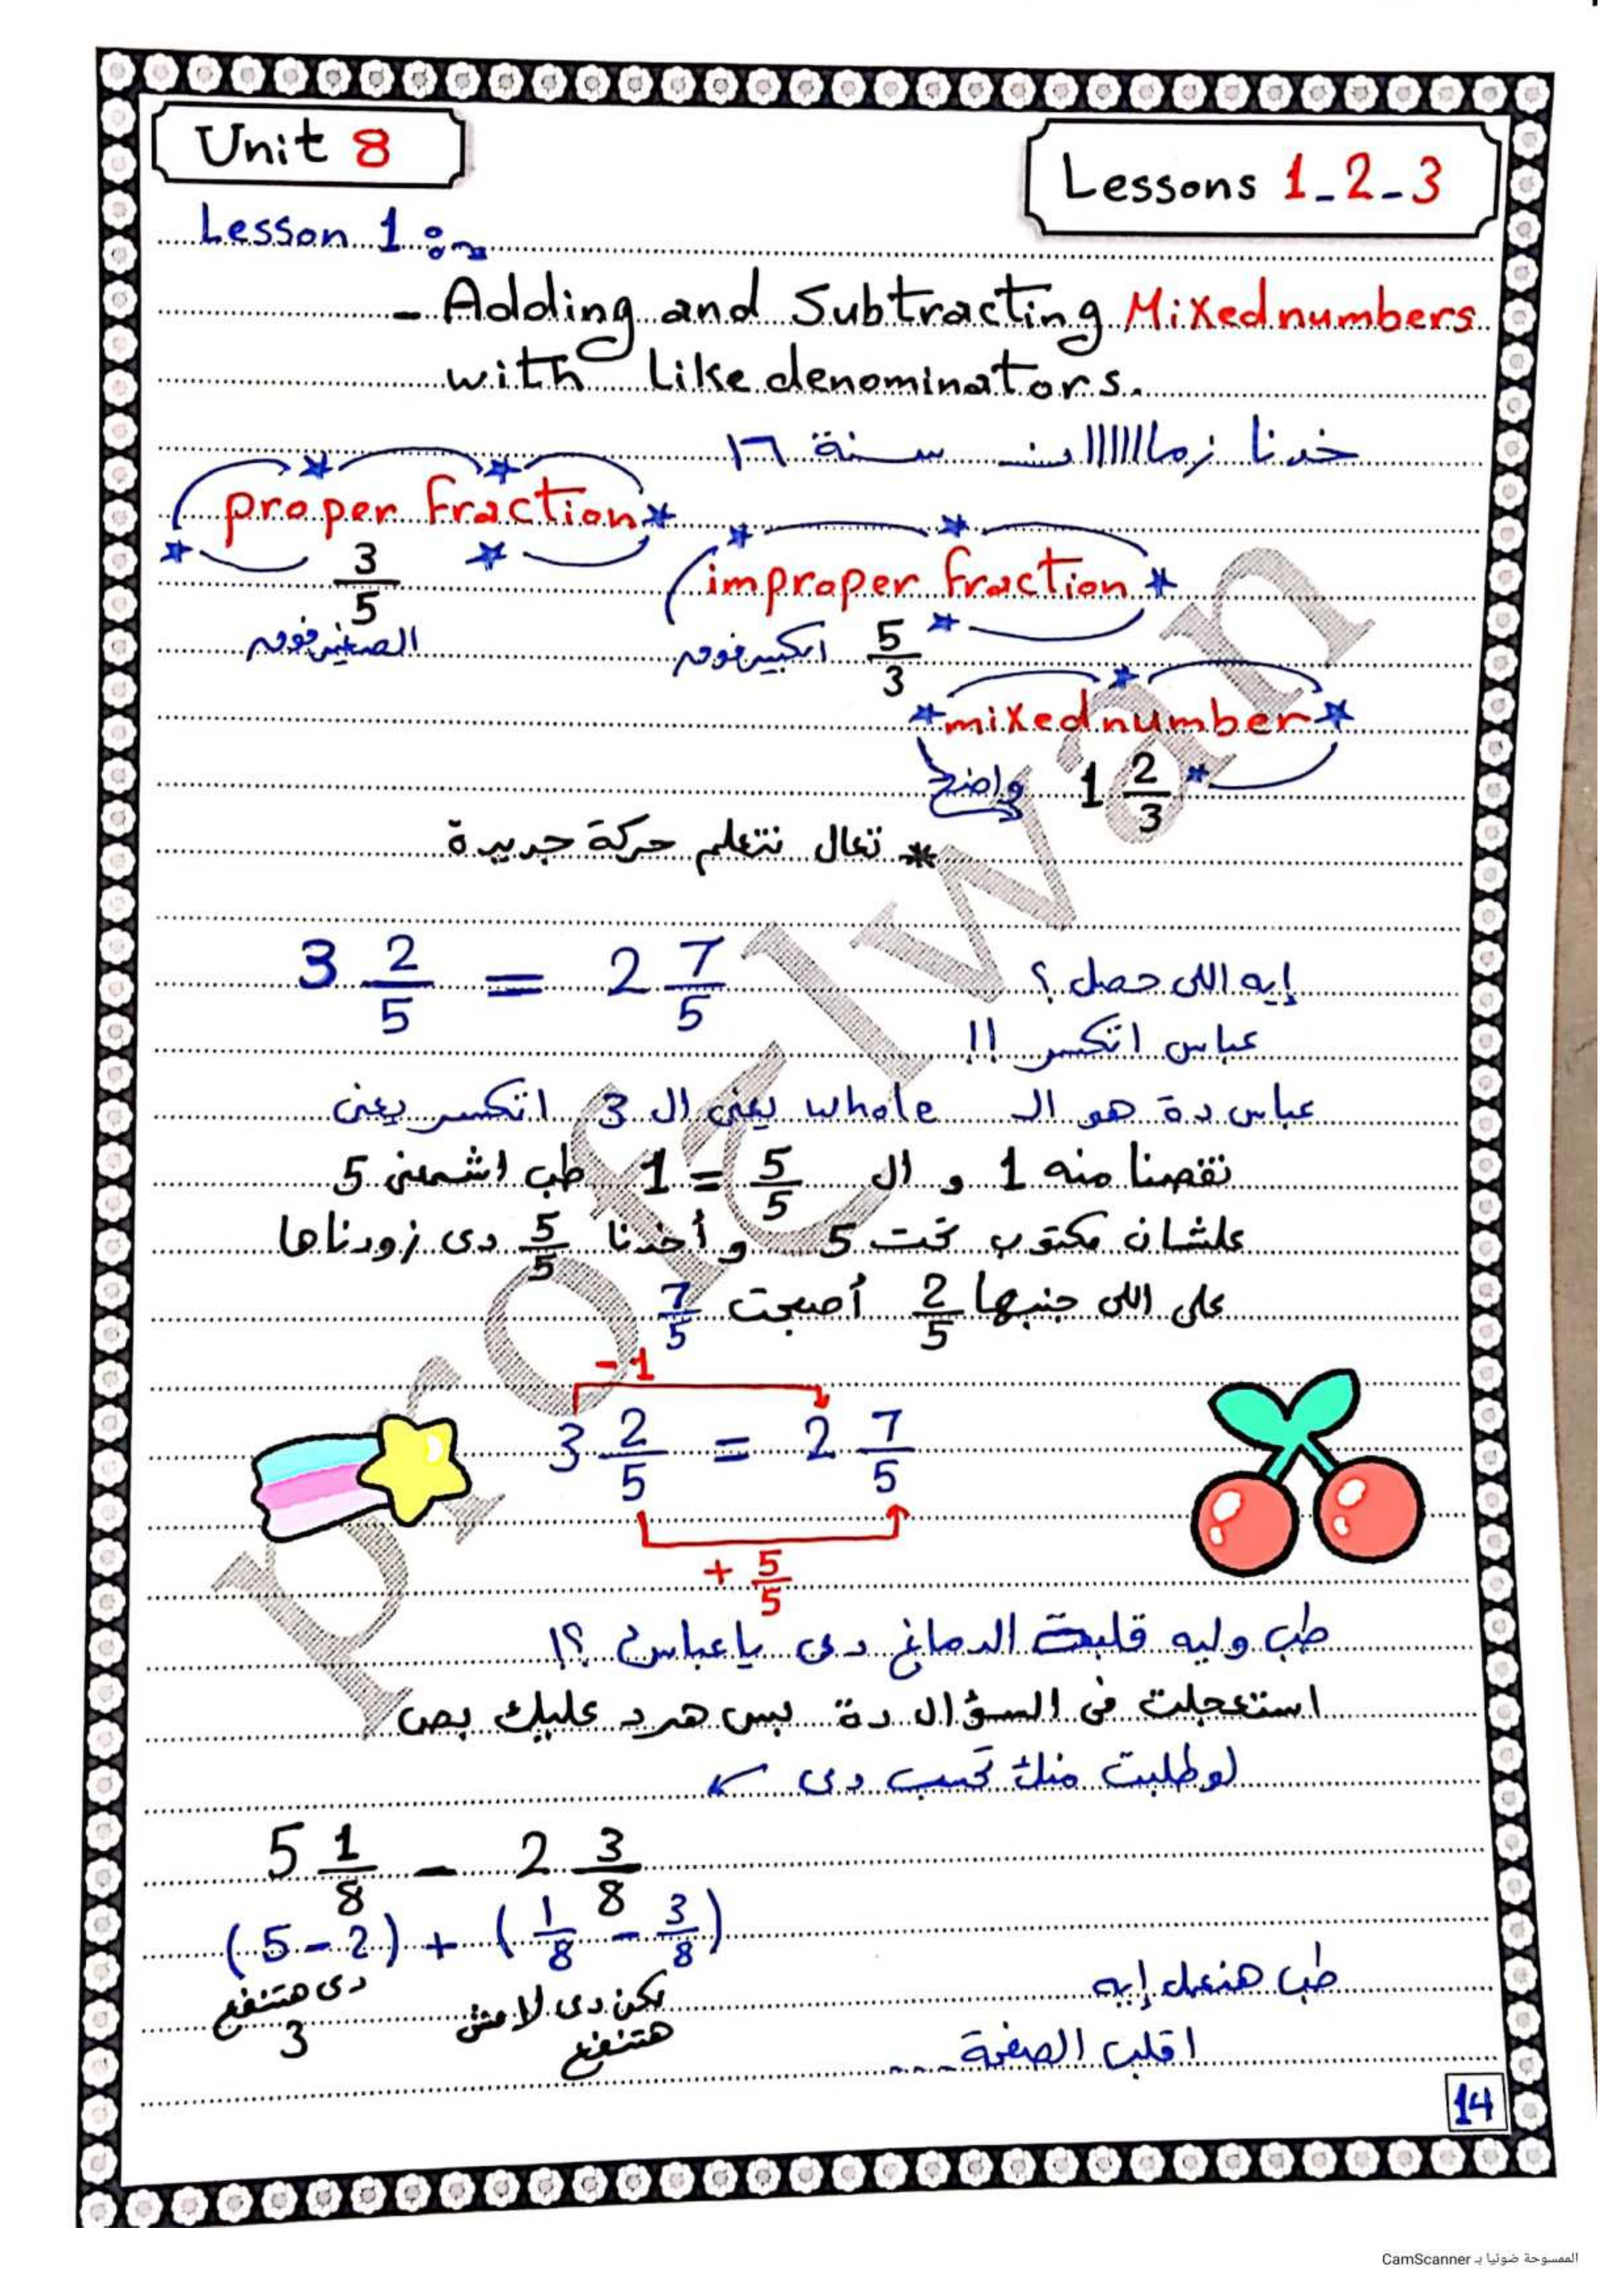 Unit 8
Lessons 1-2-3
Lesson 1:
- Adding and Subtracting Mixed numbers
with Like denominators.
خدنا زمااااااان سنة ١٦
proper fraction
3/5
الصغير فوق
improper fraction
5/3
الكبير فوق
mixed number
1 2/3
واضح
* تعال نتعلم حركة جديدة
3 2/5 = 2 7/5
إيه اللى حصل ؟
عباس اتكسر !!
عباس دة هو الـ whole يعنى ال 3 اتكسر يعنى
نقصنا منه 1 و ال 5/5 = 1 طب اشمعنى 5
علشان مكتوب تحت 5 و أخدنا 5/5 دى زودناها
على اللى جنبها 2/5 أصبحت 7/5
-1
3 2/5 = 2 7/5
+ 5/5
طب وليه قلبت الدماغ دى يا عباس ؟!
استعجلت فى السؤال دة بس هرد عليك بص
لو طلبت منك تحسب دى
5 1/8 - 2 3/8
(5-2) + (1/8 - 3/8)
دى هتنفع
3
لكن دى لا مش
هتنفع
طب هنعمل إيه
اقلب الصفحة ....
14
Prof Elwan
الممسوحة ضوئيا بـ CamScanner